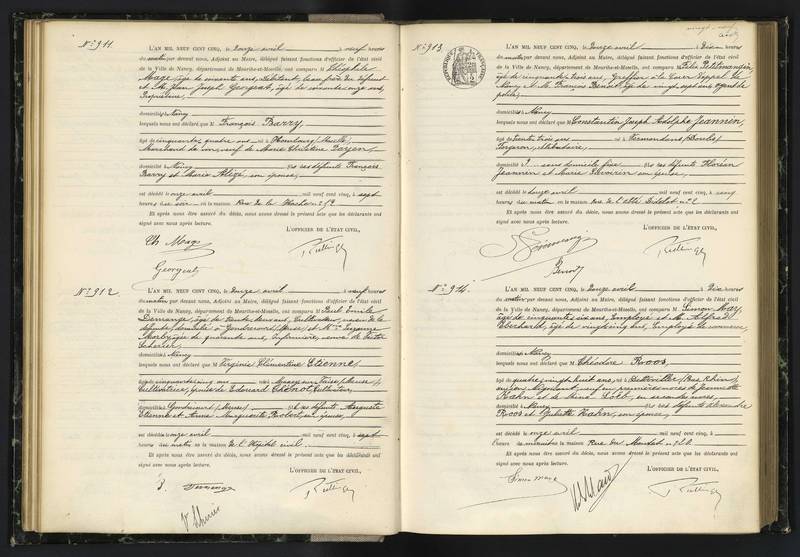 N° 911.
L'AN MIL NEUF CENT CINQ, le douze avril à neuf heures
du matin par devant nous, Adjoint au Maire, délégué faisant fonctions d'officier de l'état civil
de la Ville de Nancy, département de Meurthe-et-Moselle, ont comparu M Théophile
Mage, âgé de soixante ans, beau frère du défunt
et M. Jean Joseph Georgeat, âgé de soixante onze ans,
Propriétaire,
domiciliés à Nancy
lesquels nous ont déclaré que M François Barry,
âgé de cinquante quatre ans né à Hombourg (Moselle)
Marchand de vin, veuf de Marie Christine Payen,
domicilié à Nancy fils des défunts François
Barry et Marie Alizé son épouse,
est décédé le onze avril mil neuf cent cinq, à sept
heures du soir en la maison rue de la Hache n° 59
Et après nous être assuré du décès, nous avons dressé le présent acte que les déclarants ont
signé avec nous après lecture.
L'OFFICIER DE L'ÉTAT CIVIL,
Th Mage
Georgeat
N° 912.
L'AN MIL NEUF CENT CINQ, le douze avril à neuf heures
du matin par devant nous, Adjoint au Maire, délégué faisant fonctions d'officier de l'état civil
de la Ville de Nancy, département de Meurthe-et-Moselle, ont comparu M Paul Emile
Demange, âgé de trente ans, Cultivateur, de la
défunte, domicilié à Gondrecourt (Meuse) et Mme Suzanne
âgée de quarante ans, Infirmière, veuve de
domiciliés à Nancy
lesquels nous ont déclaré que M Virginie Clémentine Etienne,
âgée cinquante cinq ans née à Mauvages (Meuse),
Cultivatrice, épouse de Edouard Chenot, Cultivateur
domiciliée à Gondrecourt (Meuse) fille des défunts Auguste
Etienne et Anne Marguerite Robert, son épouse,
est décédée le onze avril mil neuf cent cinq, à sept
heures du matin en la maison de l'Hôpital civil.
Et après nous être assuré du décès, nous avons dressé le présent acte que les déclarants ont
signé avec nous après lecture.
L'OFFICIER DE L'ÉTAT CIVIL,
Demange
N° 913.
L'AN MIL NEUF CENT CINQ, le douze avril à Dix heures
du matin par devant nous, Adjoint au Maire, délégué faisant fonctions d'officier de l'état civil
de la Ville de Nancy, département de Meurthe-et-Moselle, ont comparu M Petitmangin,
âgé de cinquante trois ans, Greffier à la Cour d'Appel de
Nancy et M. Francis Benoit, âgé de vingt sept ans agent de
police,
domiciliés à Nancy
lesquels nous ont déclaré que M Constantin Joseph Adolphe Jeannin,
âgé de trente trois ans né à Vermondans (Doubs)
Forgeron, célibataire,
domicilié à sans domicile fixe fils des défunts Florian
Jeannin et Marie son épouse,
est décédé le douze avril mil neuf cent cinq, à cinq
heures du matin en la maison rue de l'abbé Didelot n° 2
Et après nous être assuré du décès, nous avons dressé le présent acte que les déclarants ont
signé avec nous après lecture.
L'OFFICIER DE L'ÉTAT CIVIL,
Benoit
N° 914.
L'AN MIL NEUF CENT CINQ, le douze avril à Dix heures
du matin par devant nous, Adjoint au Maire, délégué faisant fonctions d'officier de l'état civil
de la Ville de Nancy, département de Meurthe-et-Moselle, ont comparu M Simon May,
âgé de cinquante six ans, Employé et M. Alfred
Eberhard, âgé de vingt cinq ans, Employé de commerce,
domiciliés à Nancy
lesquels nous ont déclaré que M Théodore Roos,
âgé de quatre vingt huit ans, né à (Bas Rhin)
ancien Négociant, veuf en premières noces de Jeannette
Kahn et de en secondes noces,
domicilié à Nancy fils des défunts Alexandre
Roos et Juliette Kahn, son épouse,
est décédé le onze avril mil neuf cent cinq, à
l'heure de minuit en la maison Rue du
Et après nous être assuré du décès, nous avons dressé le présent acte que les déclarants ont
signé avec nous après lecture.
L'OFFICIER DE L'ÉTAT CIVIL,
Simon May